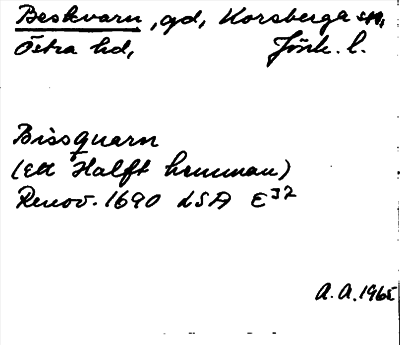 Beskvarn, gd, Korsberga sn,
Östra hd, Jönk. l.
Bissquarn
(Ett Halft hemman)
Renov. 1690 LSA E32
A.A. 1965